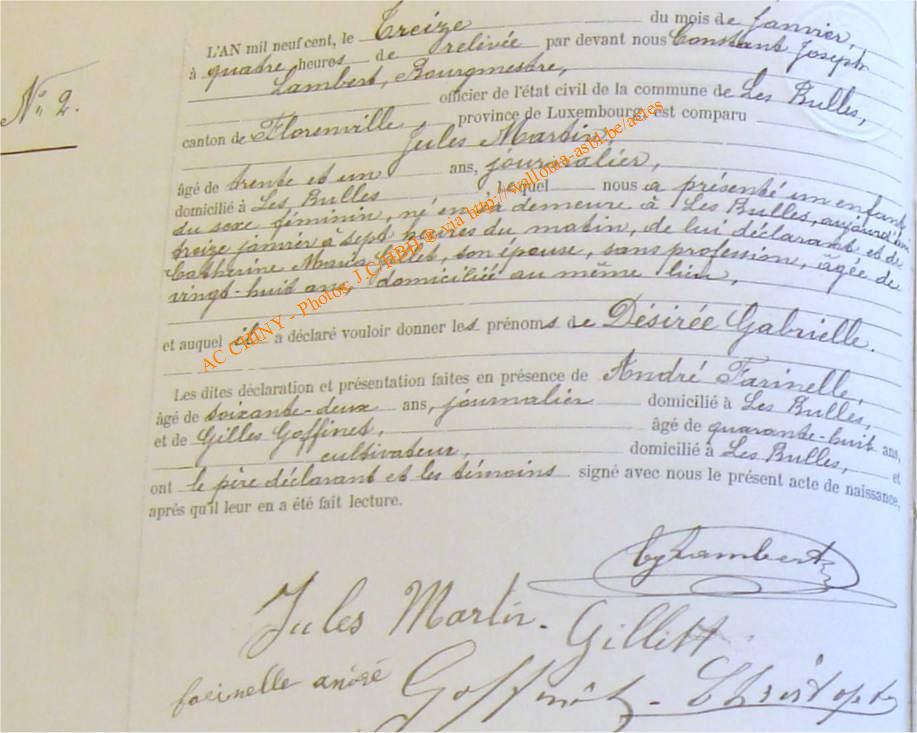 N° 2.
L'AN mil neuf cent, le treize du mois de Janvier,
à quatre heures de relevée par devant nous Constant Joseph
Lambert, Bourgmestre,
officier de l'état civil de la commune de Les Bulles,
canton de Florenville, province de Luxembourg, est comparu
Jules Martin,
âgé de trente et un ans, journalier,
domicilié à Les Bulles, lequel nous a présenté un enfant
du sexe féminin, né en sa demeure à Les Bulles, aujourd'hui
treize janvier à sept heures du matin, de lui déclarant et de
Catherine Maria Gillet, son épouse, sans profession, âgée de
vingt-huit ans, domiciliée au même lieu,
et auquel il a déclaré vouloir donner les prénoms de Désirée Gabrielle.
Les dites déclaration et présentation faites en présence de André Farinelle,
âgé de soixante-deux ans, journalier domicilié à Les Bulles,
et de Gilles Goffinet, âgé de quarante-huit ans,
cultivateur, domicilié à Les Bulles, et
ont le père déclarant et les témoins signé avec nous le présent acte de naissance,
après qu'il leur en a été fait lecture.
CjLambert
Jules Martin - Gillett
farinelle andré Goffinet - Christoph
AC CHINY - Photog J.C HBH ® via http://wallonia-asbl.be/actes